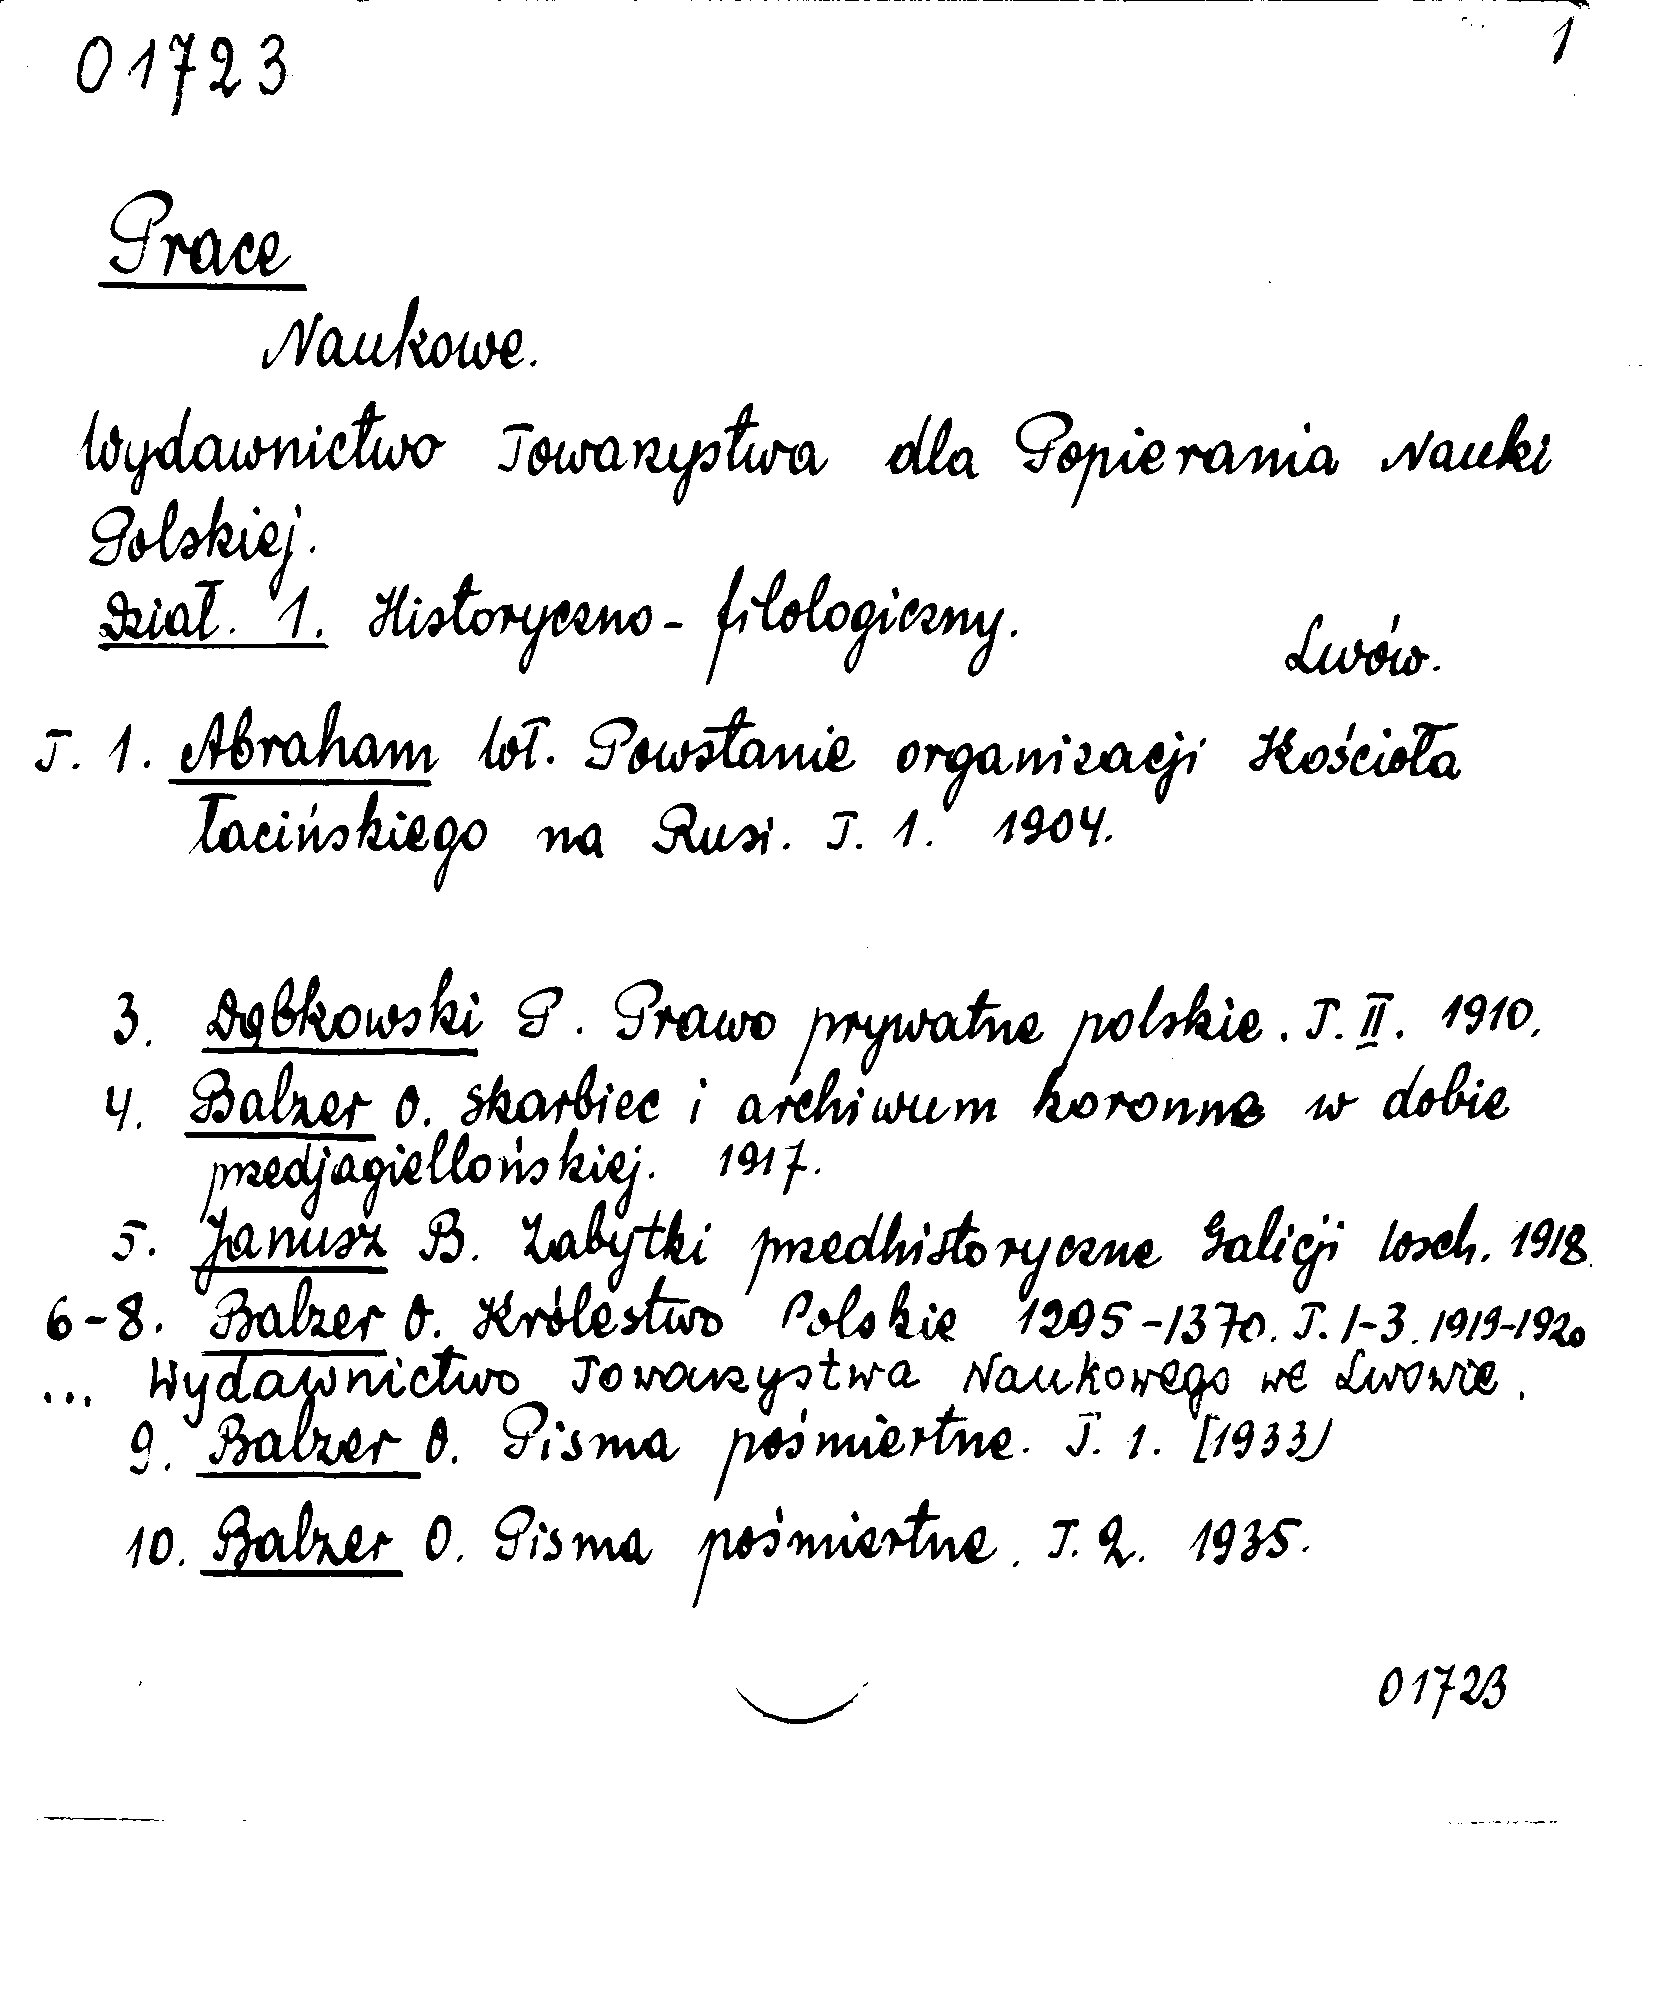 01723
1
Prace
Naukowe.
Wydawnictwo Towarzystwa dla Popierania Nauki
Polskiej.
Dział. 1. Historyczno-filologiczny.
Lwów.
T. 1. Abraham Wł. Powstanie organizacji Kościoła
łacińskiego na Rusi. T. 1. 1904.
3. Dąbkowski P. Prawo prywatne polskie. T. II. 1910.
4. Balzer O. Skarbiec i archiwum koronne w dobie
przedjagiellońskiej. 1917.
5. Janusz B. Zabytki przedhistoryczne Galicji Wsch. 1918.
6-8. Balzer O. Królestwo Polskie 1295-1370. T. 1-3. 1919-1920
... Wydawnictwo Towarzystwa Naukowego we Lwowie.
9. Balzer O. Pisma pośmiertne. T. 1. [1933)
10. Balzer O. Pisma pośmiertne. T. 2. 1935.
01723